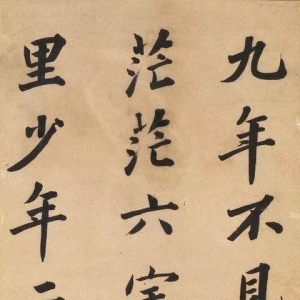 九年不見
茫茫六字
里少年